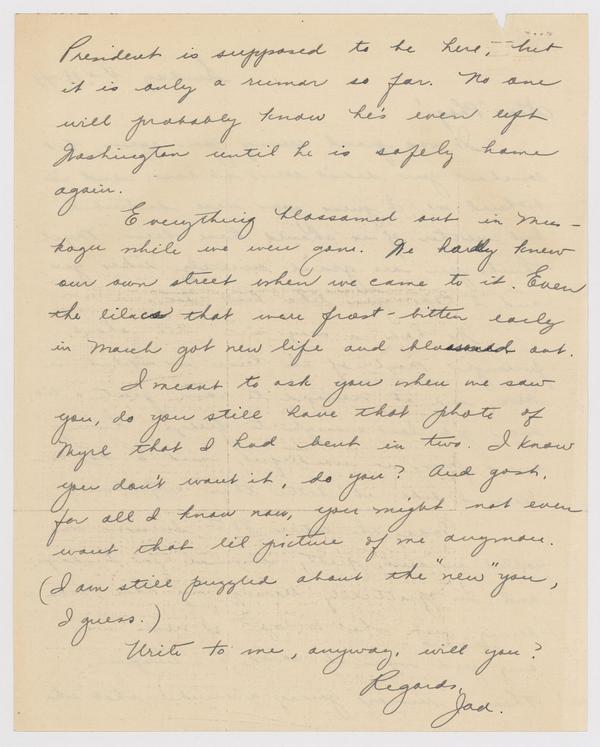 President is supposed to be here, but
it is only a rumor so far. No one
will probably know he's even left
Washington until he is safely home
again.
Everything blossomed out in Mus-
kogee while we were gone. We hardly knew
our own street when we came to it. Even
the lilacs that were frost-bitten early
in March got new life and blossomed out.
I meant to ask you when we saw
you, do you still have that photo of
Myrl that I had bent in two. I know
you don't want it, do you? And gosh,
for all I know now, you might not even
want that lil picture of me anymore.
(I am still puzzled about the "new" you,
I guess.)
Write to me, anyway, will you?
Regards,
Jad.